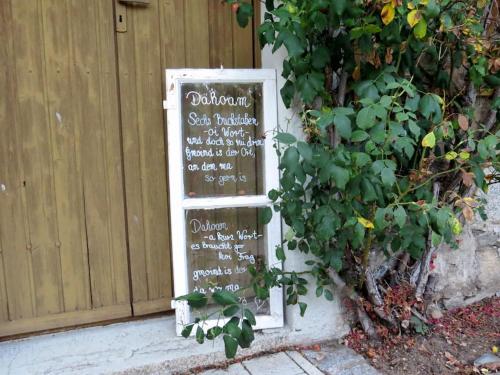 Dahoam
Sechs Buchstaben
- oi Wort -
und doch so vui drin
gmoind is der Ort,
an dem ma
so gern is
Dahoam
- a kurz Wort -
es braucht gar
koi Frag
gmoind is der
da wo ma